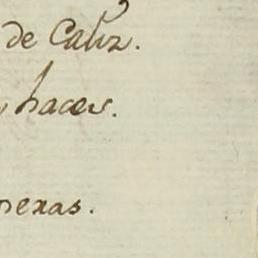 de Caliz.
hacer.
nexas.